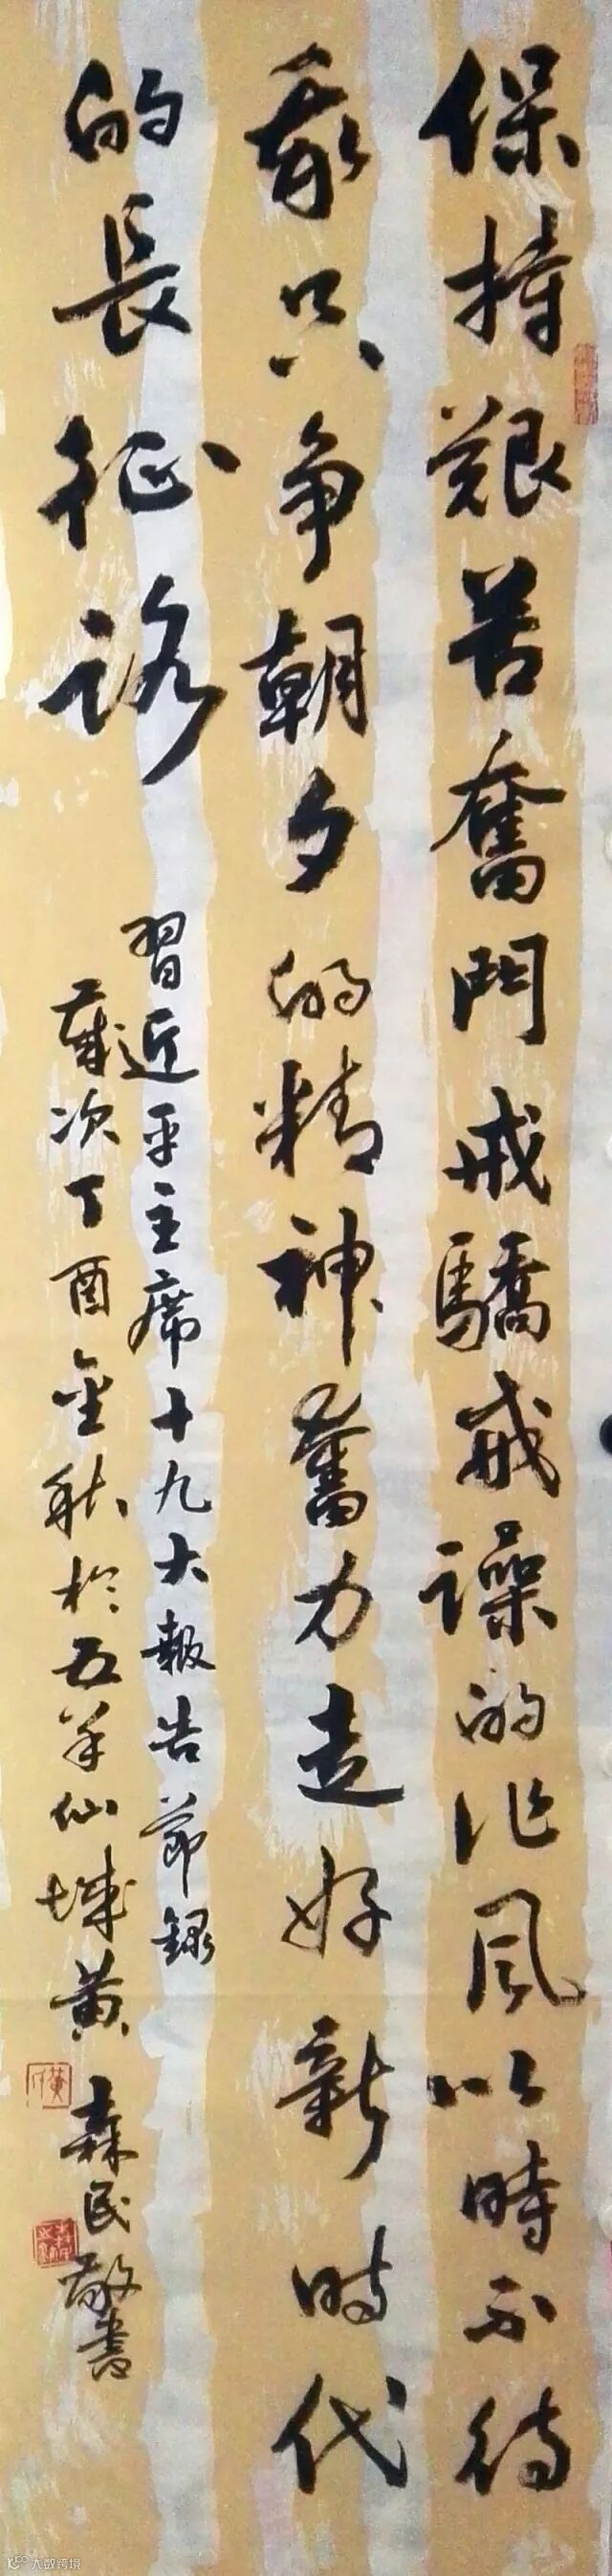 保持艱苦奮鬥戒驕戒譟的作风以時不待
我只争朝夕的精神奮力走好新時代
的長征路
習近平主席十九大報告節録
歲次丁酉金秋於五羊仙城黄森民敬書
大数跨境